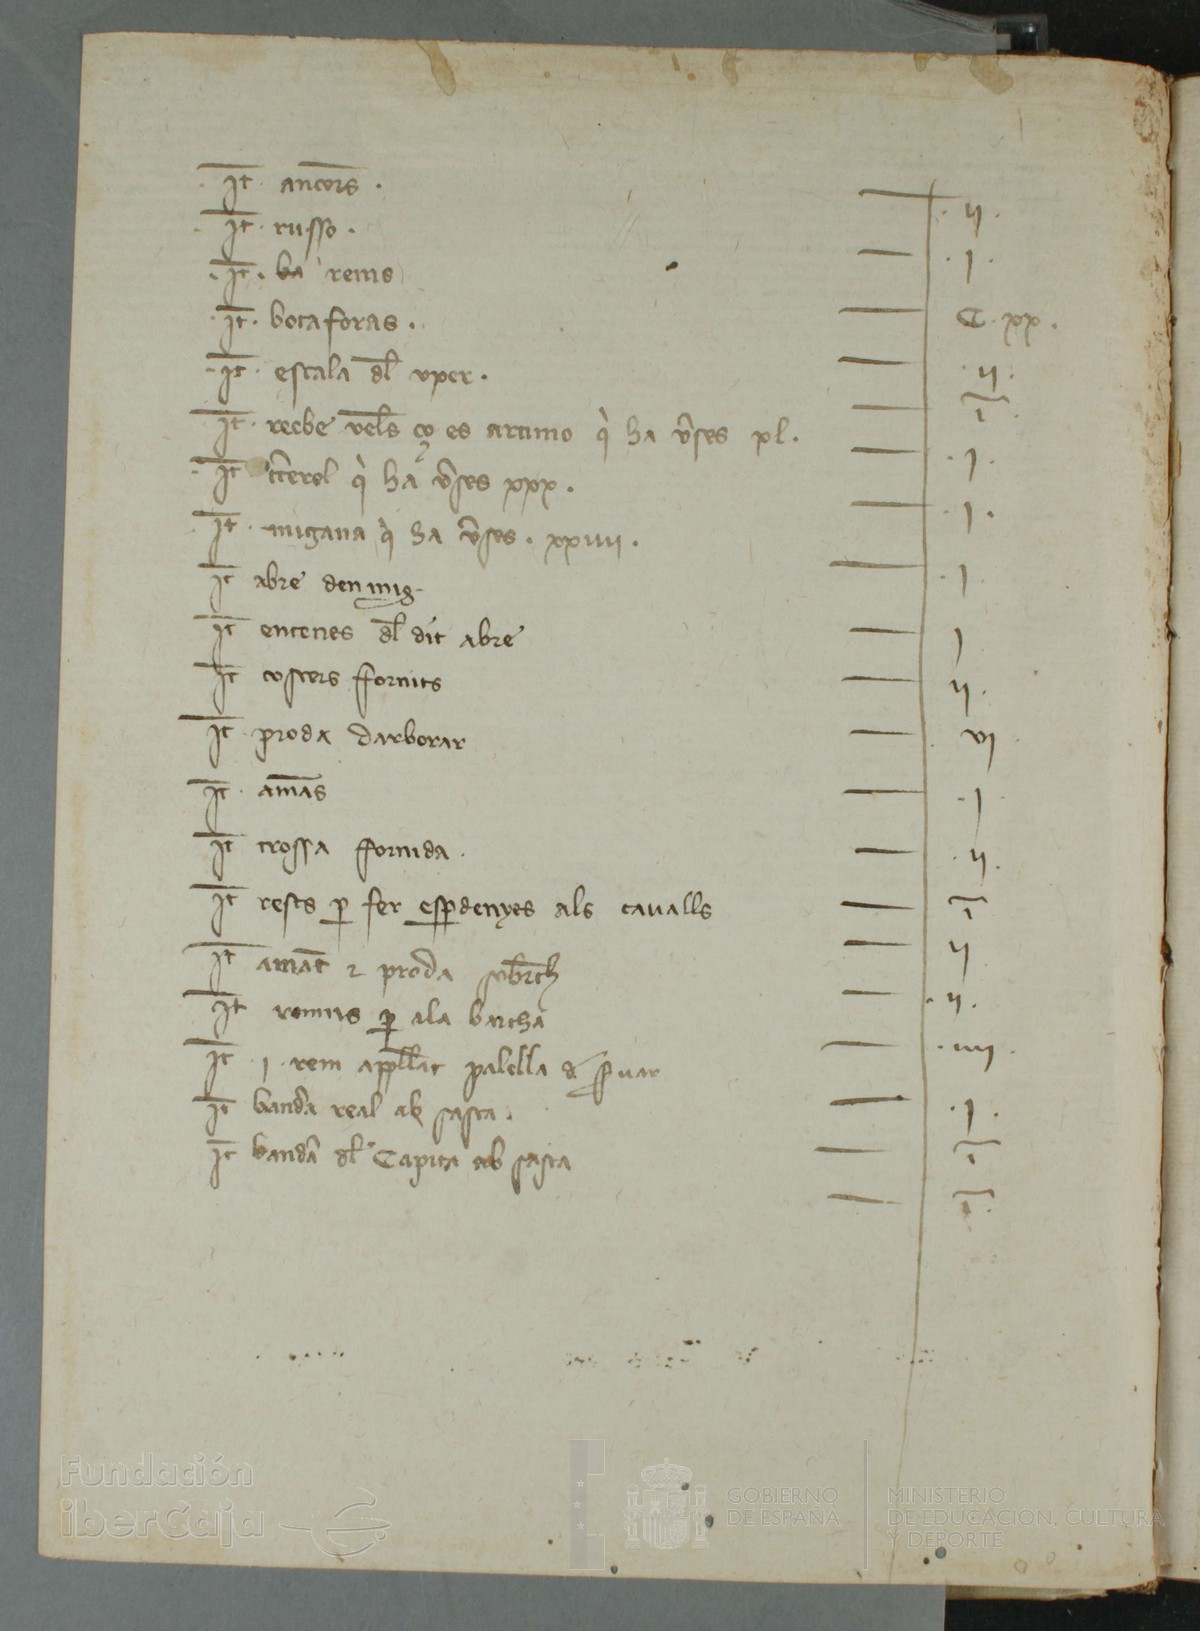 It ancors . ij .
It russo . j .
It ba rems C xx .
It botaforas . ij .
It escala dl vper . i
It recbe vels ço es artimo q ha vses xl . j .
It tterol q ha vses xxx . j .
It migana q ha vses . xxiiij . j
It abre den mig j
It entenes dl dit abre ij .
It costers fornits vj
It proda darborar j
It amas ij .
It trossa fornida . i
It rests p fer espdenyes als cavalls ij
It amat 2 proda ij .
It remits p ala barcha iiij .
It j rem appllat palella d j .
It banda real ab sasta . i
It banda dl Capita ab sasta i
Fundación
iberCaja
GOBIERNO
DE ESPAÑA
MINISTERIO
DE EDUCACIÓN, CULTURA
Y DEPORTE